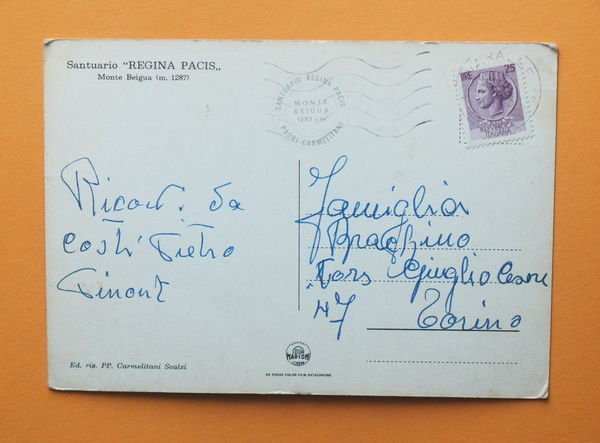 Santuario "REGINA PACIS„
Monte Beigua (m. 1287)
SANTUARIO REGINA PACIS
MONTE
BEIGUA
1287 s.m.
PADRI CARMELITANI
LIRE 25
Ricordi da
Costì Pietro
Famiglia
Braghino
Cors Giuglio Cesare
47 Torino
Ed. ris. PP. Carmelitani Scalzi
MARCONI
GENOVA
DA KODAK COLOR FILM EKTACHROME